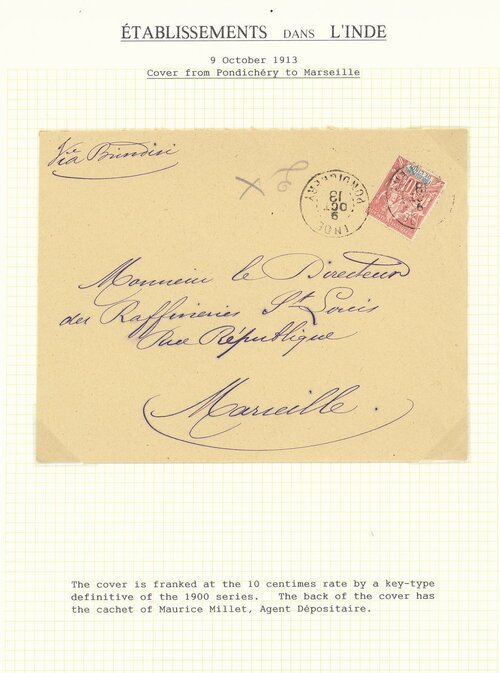 ÉTABLISSEMENTS DANS L'INDE
9 October 1913
Cover from Pondichéry to Marseille
Via Brindisi
PONDICHERY
9
OCT
13
INDE
10
Monsieur le Directeur
des Raffineries St Louis
Rue République
Marseille.
The cover is franked at the 10 centimes rate by a key-type
definitive of the 1900 series. The back of the cover has
the cachet of Maurice Millet, Agent Dépositaire.